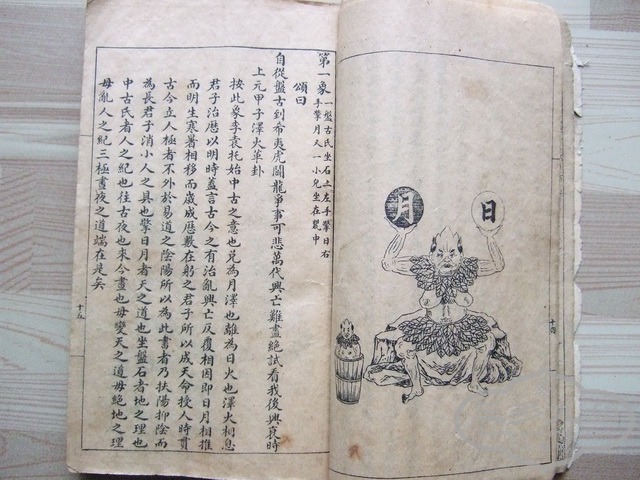 日
月
十四
第一象 一盤古氏坐石上左手擎日右
手擎月又一小兒坐在甕中
頌曰
自從盤古到希夷虎鬭龍爭事可悲萬代興亡難盡絕試看我後興衰時
上元甲子澤火革卦
按此象李袁托始中古之意也兌為月澤也離為日火也澤火相息
君子治厯以明時蓋言古今之有治亂興亡反覆相因即日月相推
而明生寒暑相移而歲成厯數在躬之君子所以成天命授人時貫
古今立人極者不外於易道之陰陽所以為此書者乃扶陽抑陰而
為長君子消小人之具也擎日月者天之道也坐盤石者地之理也
中古氏者人之紀也往古夜也來今晝也毋變天之道毋絕地之理
毋亂人之紀三極晝夜之道端在是矣
十五